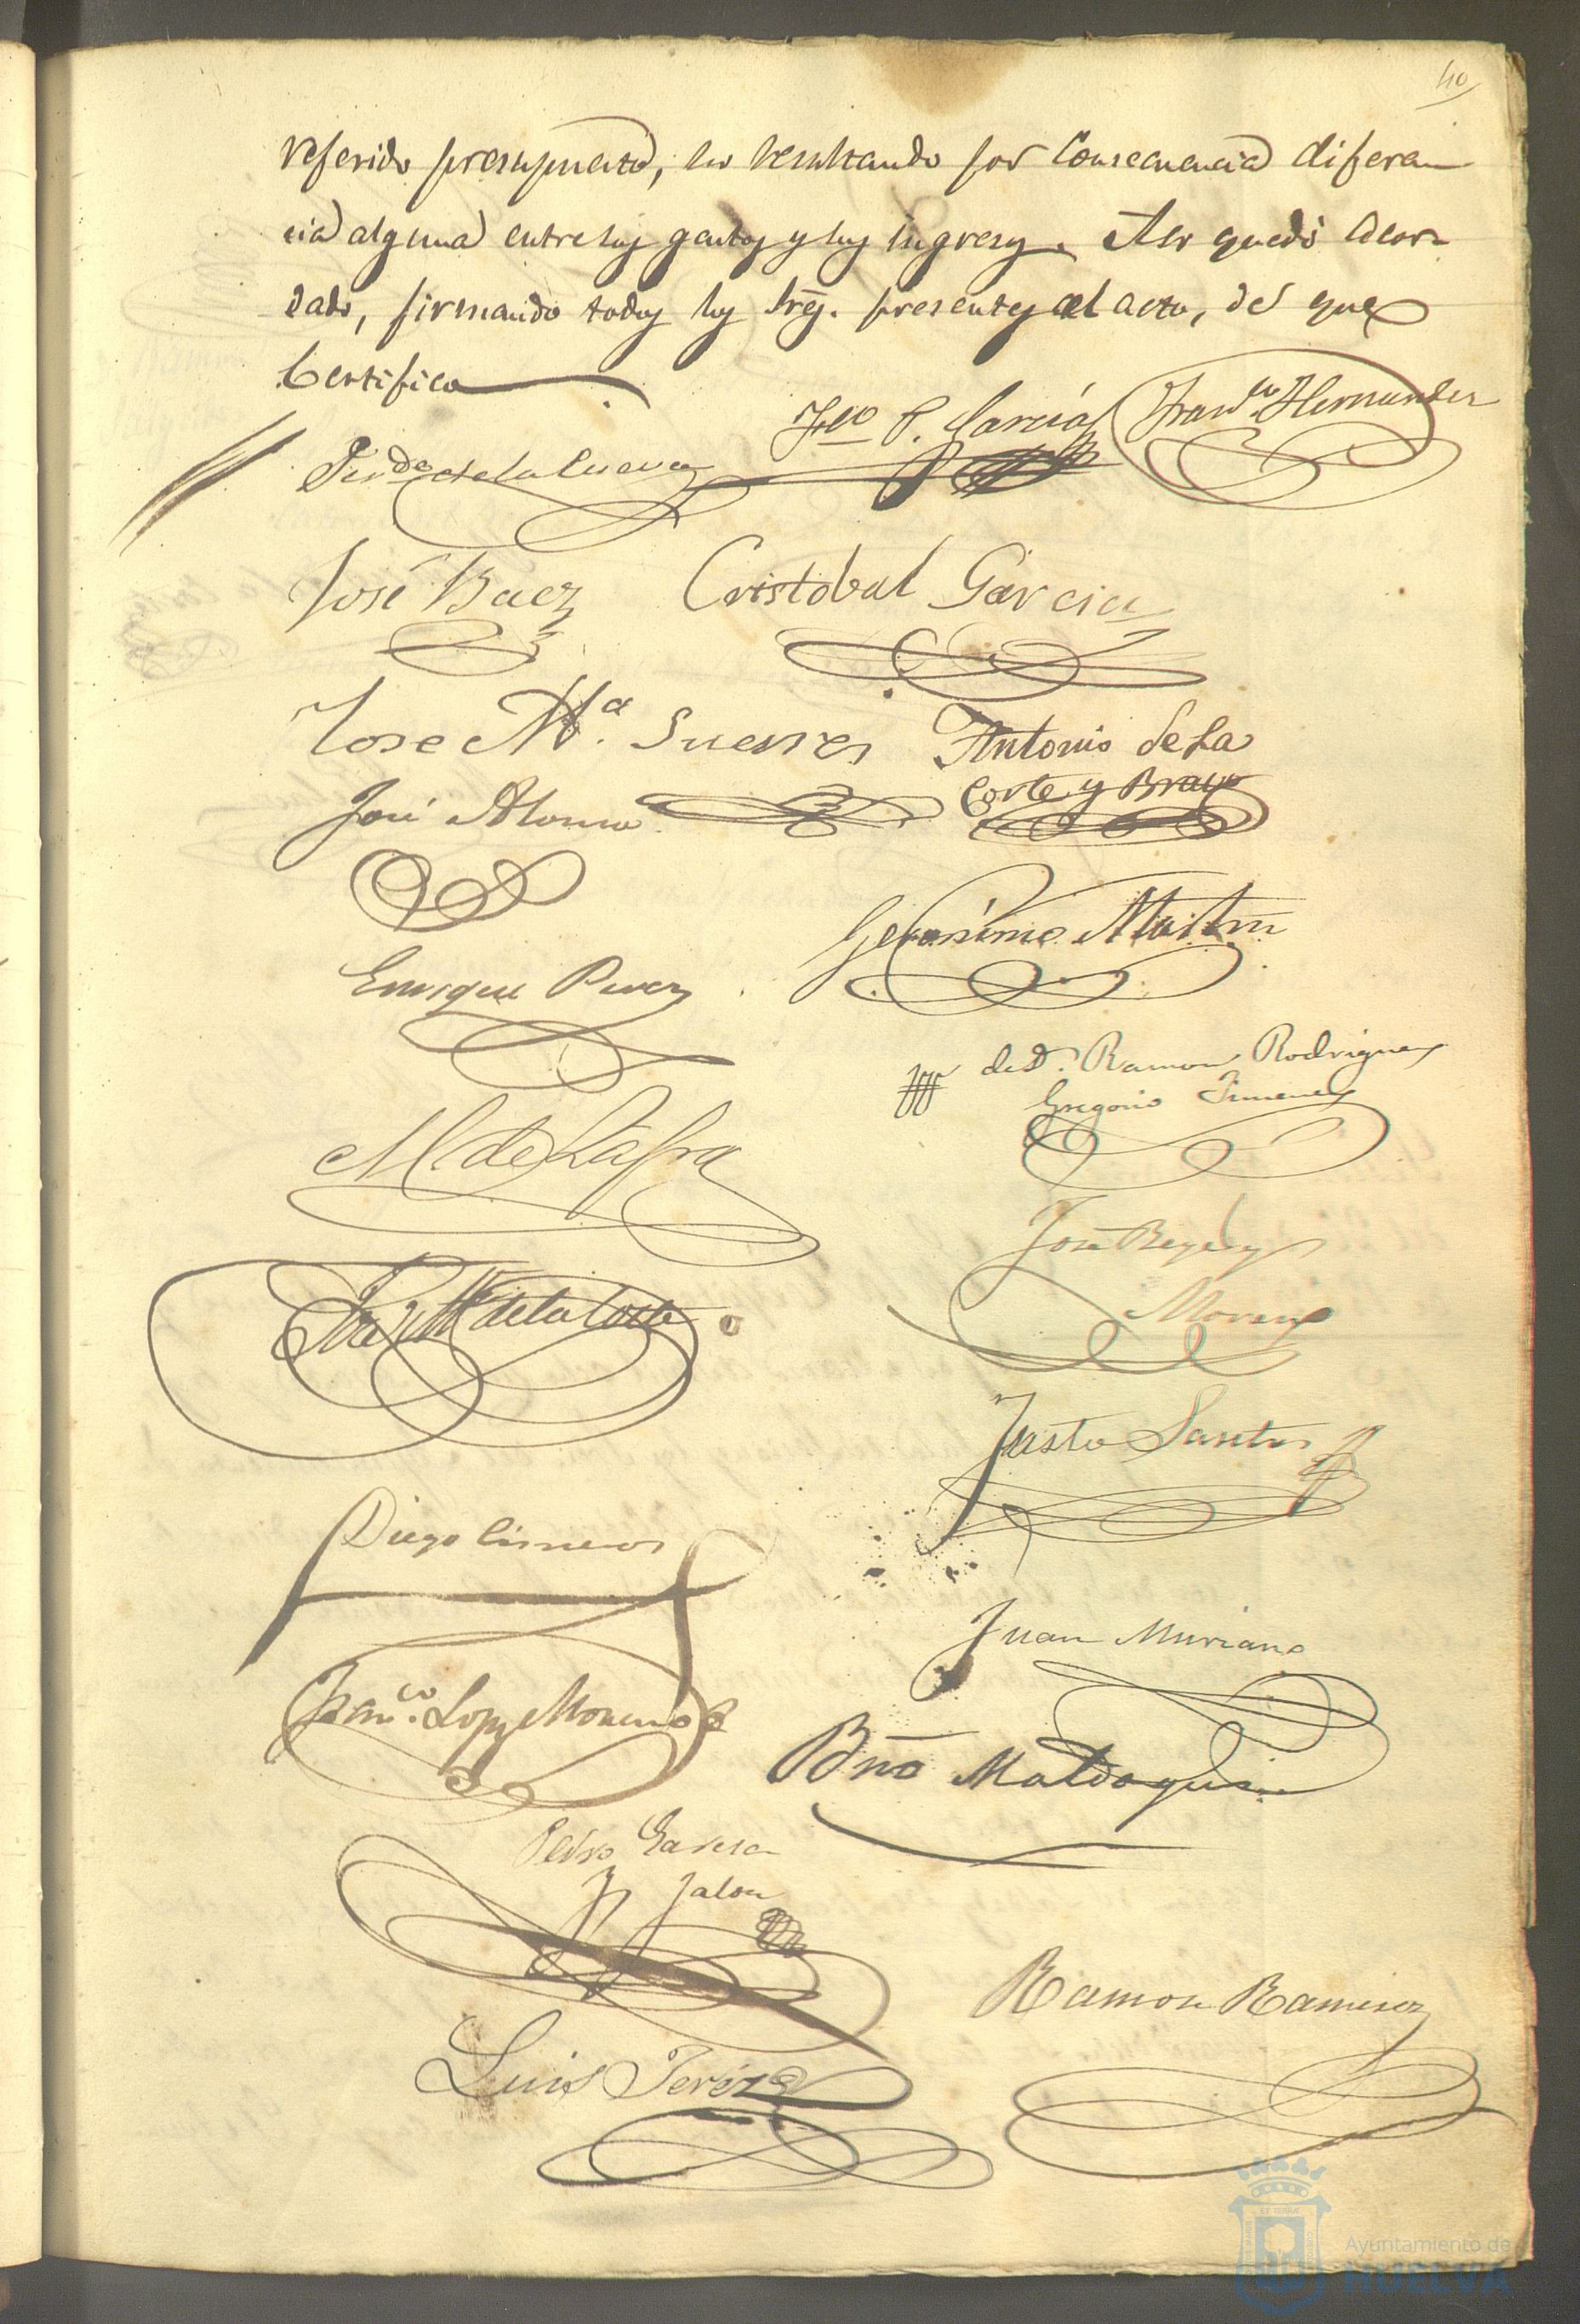 40
referido presupuesto, no resultando por consecuencia diferen
cia alguna entre los gastos y los ingresos. Así quedó acor
dado, firmando todos los Sres. presentes al acto, de que
Certifico
Fco P. García
Franco. Hernandez
de la Cueva
José Baez
Cristobal Garcia
Jose Ma. Suarez
Antonio de La
Corte y Bravo
José Alonso
Gerónimo Martin
Enrique Perez
de D. Ramon Rodriguez
Gregorio Jimenez
M de Lafra
José
Moreno
de la Corte
Justo Santos
Diego Cisneros
Juan Muriano
Franco. Lopez Moreno
Bmo
Pedro Garcia
Jalon
Ramon Ramirez
Luis Jeréz
Ayuntamiento de
HUELVA